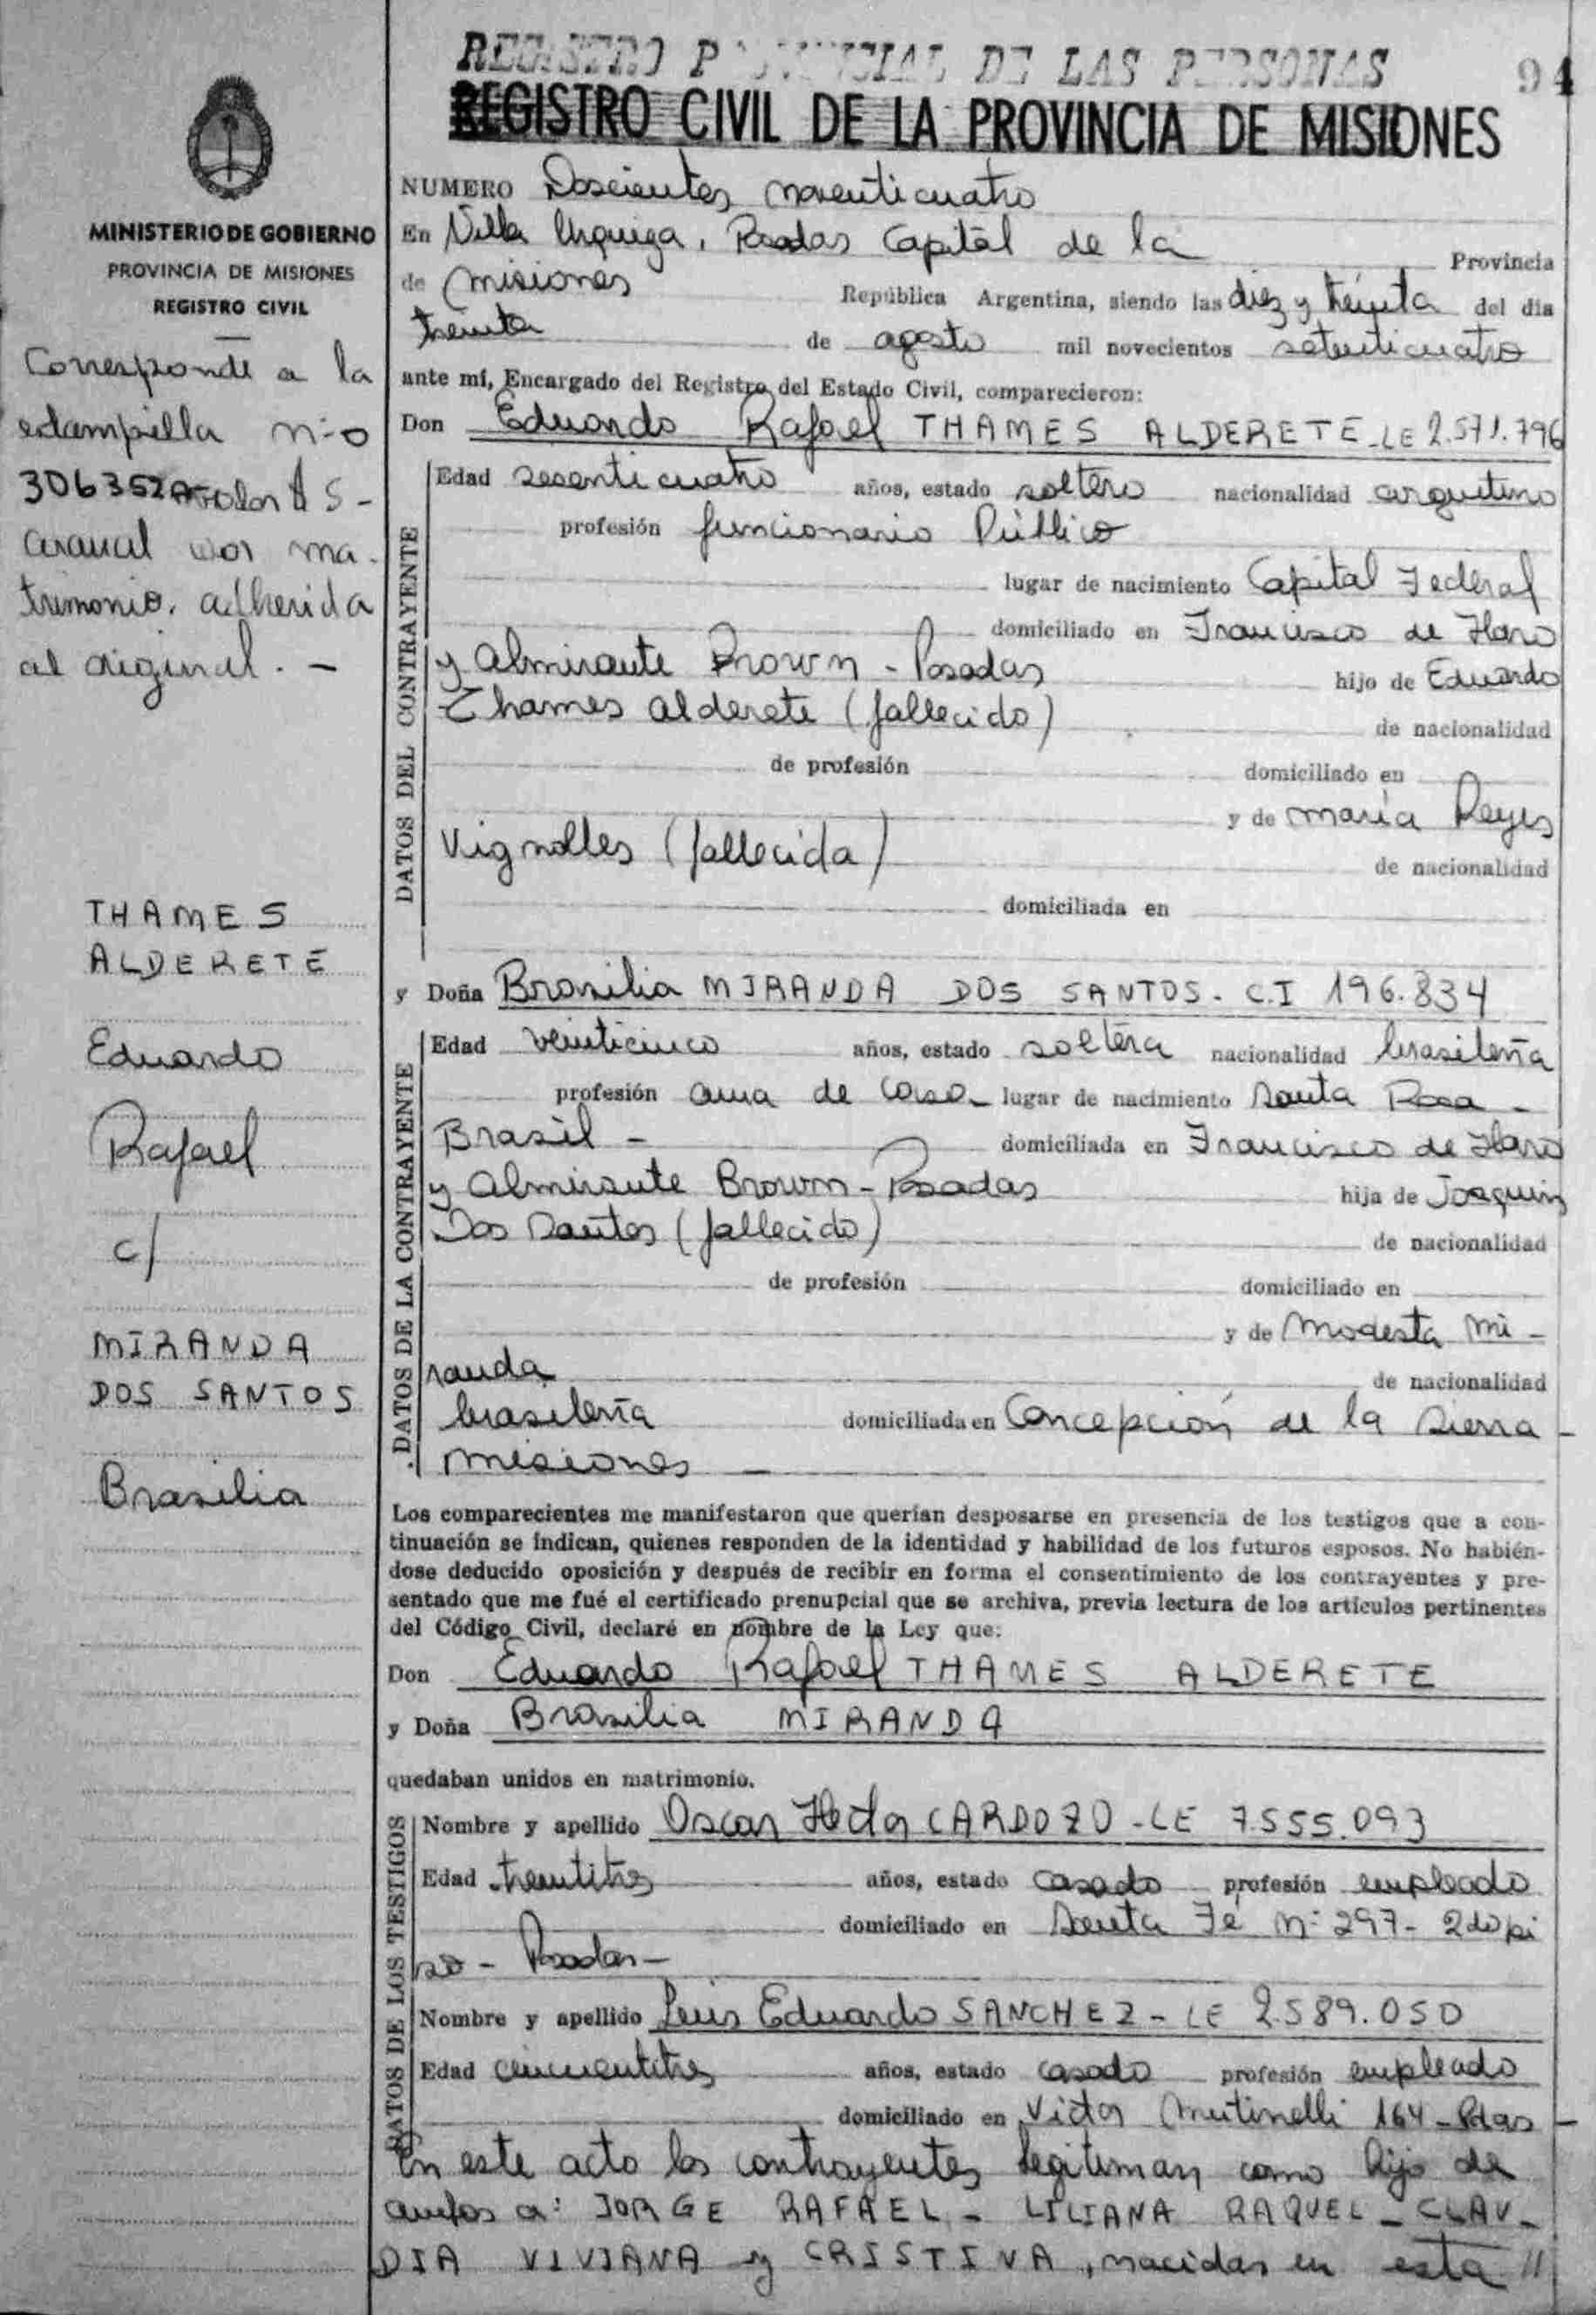 REGISTRO PROVINCIAL DE LAS PERSONAS
94
REGISTRO CIVIL DE LA PROVINCIA DE MISIONES
MINISTERIO DE GOBIERNO
PROVINCIA DE MISIONES
REGISTRO CIVIL
Corresponde a la
estampilla n-o
306352 A valor $ 5-
arancel por ma-
trimonio. adherida
al original. -
THAMES
ALDERETE
Eduardo
Rafael
c/
MIRANDA
DOS SANTOS
Brasilia
NUMERO Doscientos noventicuatro
En Villa Urquiza, Posadas Capital de la Provincia
de Misiones República Argentina, siendo las diez y treinta del día
treinta de agosto mil novecientos setenticuatro
ante mí, Encargado del Registro del Estado Civil, comparecieron:
Don Eduardo Rafael THAMES ALDERETE-LE 2.571.796
DATOS DEL CONTRAYENTE
Edad sesenticuatro años, estado soltero nacionalidad argentino
profesión funcionario Público
lugar de nacimiento Capital Federal
domiciliado en Francisco de Haro
y Almirante Brown - Posadas hijo de Eduardo
Thames Alderete (fallecido) de nacionalidad
de profesión domiciliado en
y de María Reyes
Vignolles (fallecida) de nacionalidad
domiciliada en
y Doña Brasilia MIRANDA DOS SANTOS. C.I 196.834
DATOS DE LA CONTRAYENTE
Edad veinticinco años, estado soltera nacionalidad brasileña
profesión ama de casa- lugar de nacimiento Santa Rosa -
Brasil - domiciliada en Francisco de Haro
y Almirante Brown - Posadas hija de Joaquin
Dos Santos (fallecido) de nacionalidad
de profesión domiciliado en
y de Modesta Mi-
randa de nacionalidad
brasileña domiciliada en Concepción de la Sierra -
Misiones -
Los comparecientes me manifestaron que querían desposarse en presencia de los testigos que a con-
tinuación se indican, quienes responden de la identidad y habilidad de los futuros esposos. No habién-
dose deducido oposición y después de recibir en forma el consentimiento de los contrayentes y pre-
sentado que me fué el certificado prenupcial que se archiva, previa lectura de los artículos pertinentes
del Código Civil, declaré en nombre de la Ley que:
Don Eduardo Rafael THAMES ALDERETE
y Doña Brasilia MIRANDA
quedaban unidos en matrimonio.
DATOS DE LOS TESTIGOS
Nombre y apellido Oscar Hector CARDOZO - LE 7.555.093
Edad trentitres años, estado casado profesión empleado
domiciliado en Santa Fé N° 297- 2do pi
so - Posadas -
Nombre y apellido Luis Eduardo SANCHEZ - LE 2.589.050
Edad cincuentitres años, estado casado profesión empleado
domiciliado en Victor Mutinelli 164 - Pdas -
En este acto los contrayentes legitiman como hijo de
ambos a: JORGE RAFAEL - LILIANA RAQUEL - CLAU-
DIA VIVIANA y CRISTINA, nacidas en esta //